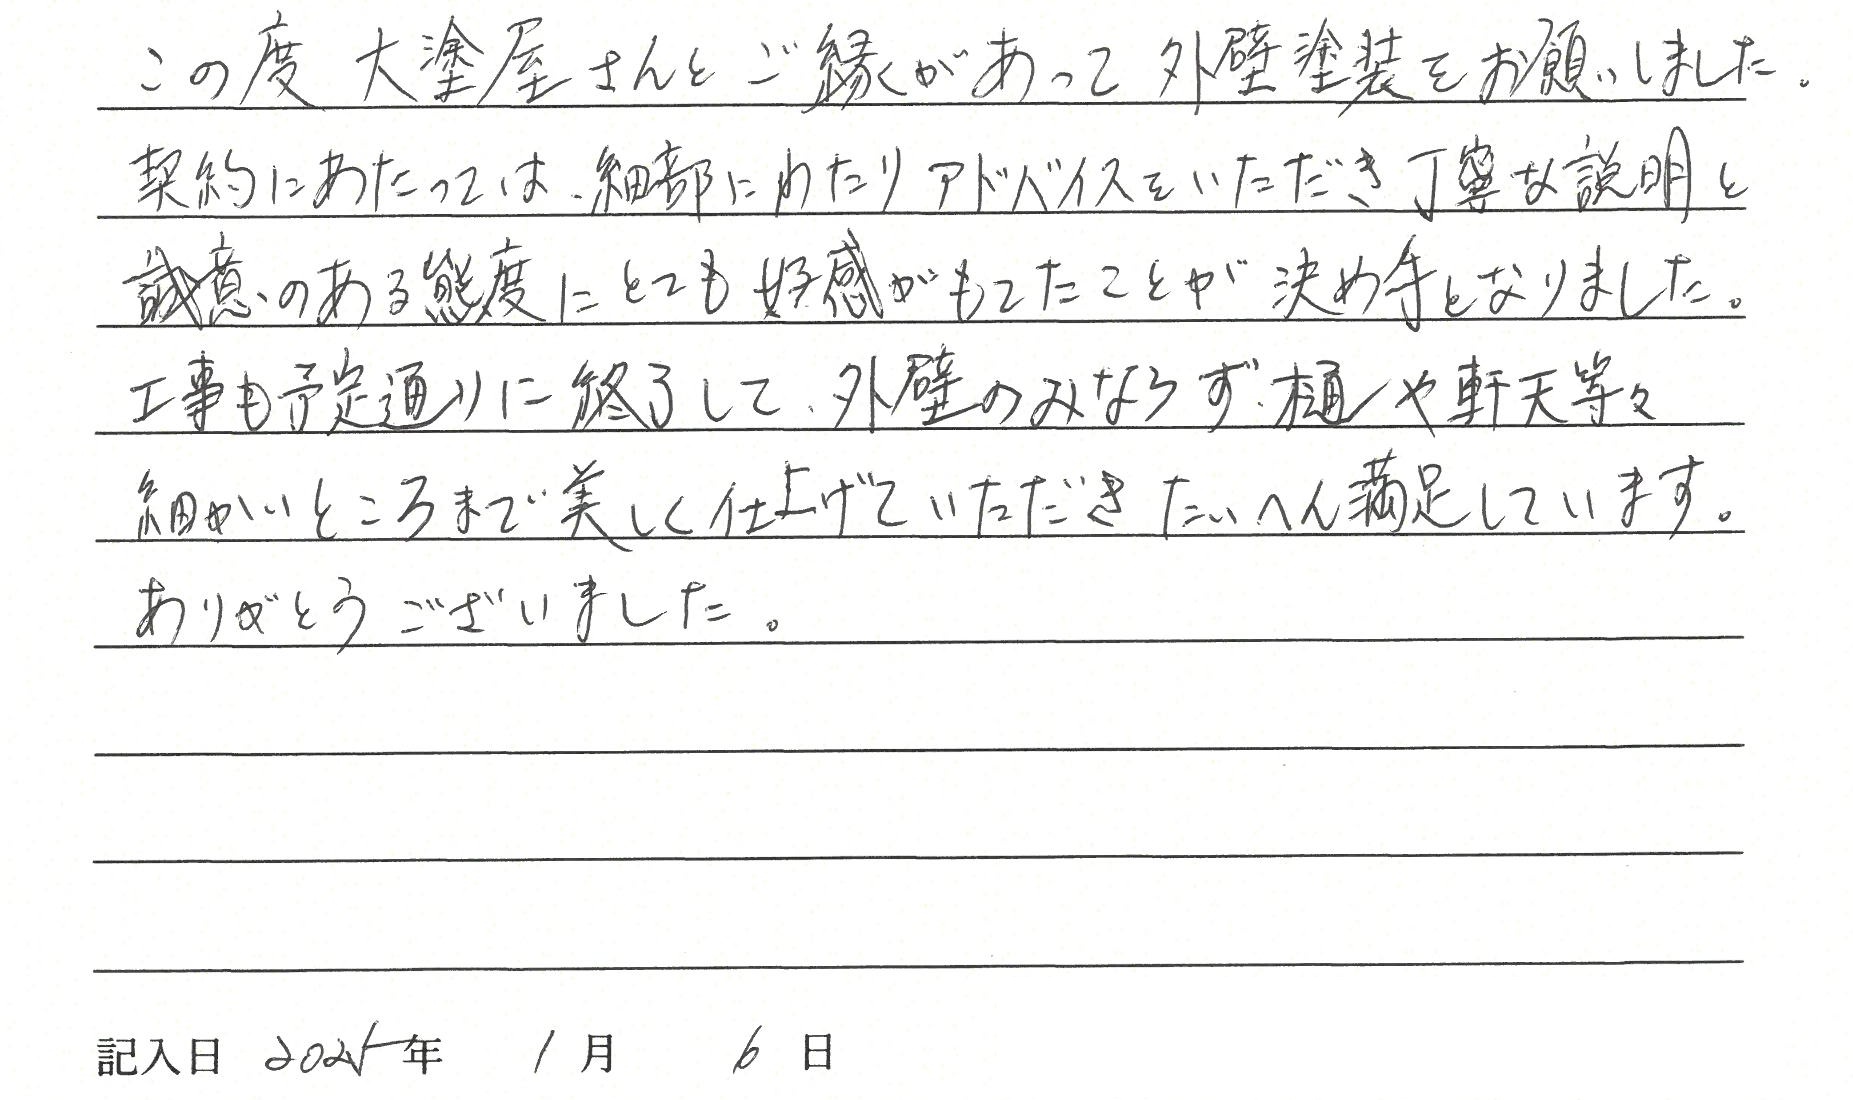 この度 大塗屋さんと ご縁があって 外壁塗装をお願いしました。
契約にあたっては、細部にわたりアドバイスをいただき丁寧な説明と
誠意のある態度にとても好感がもてたことが決め手となりました。
工事も予定通りに終了して、外壁のみならず樋や軒天等々
細かいところまで美しく仕上げていただきたいへん満足しています。
ありがとうございました。
記入日 2025年 1月 6日